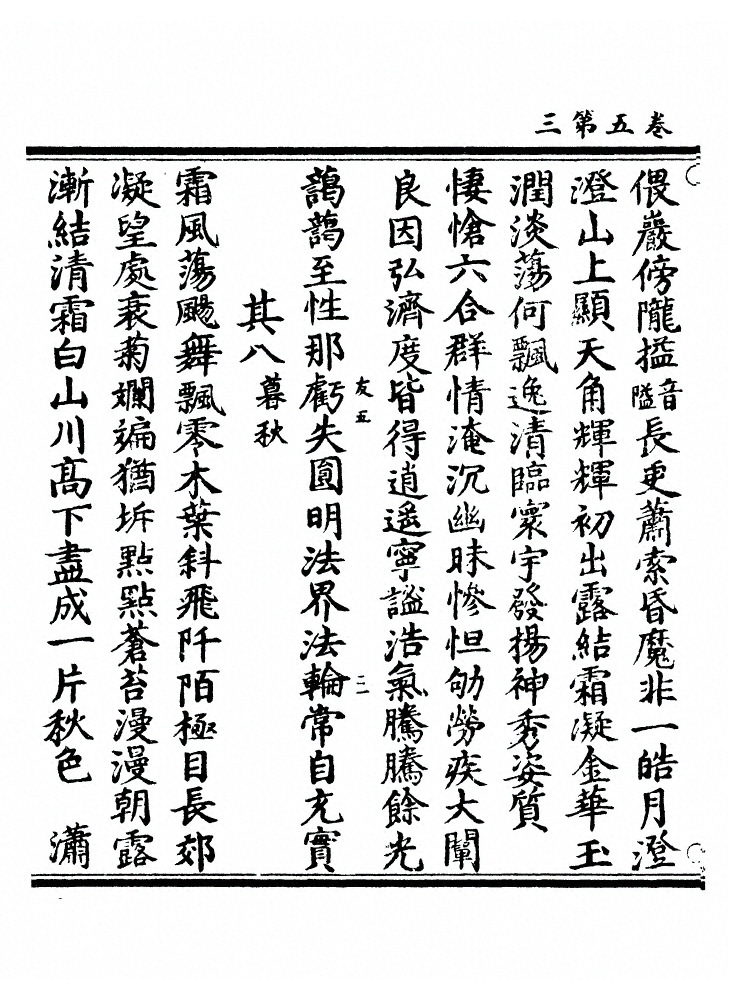 三第五卷
偎巖傍隴搤音隘長更蕭索昏魔非一皓月澄
澄山上顯天角輝輝初出露結霜凝金華玉
潤淡蕩何飄逸清臨寰宇發揚神秀姿質
悽愴六合群情淹沉幽昧慘怛劬勞疾大闡
良因弘濟度皆得逍遥寧謐浩氣騰騰餘光
友五 二
藹藹至性那虧失圓明法界法輪常自充實
其八 暮秋
霜風蕩颺舞飄零木葉斜飛阡陌極目長郊
凝望處衰菊斕斒猶坼點點蒼苔漫漫朝露
漸結清霜白山川高下盡成一片秋色 瀟